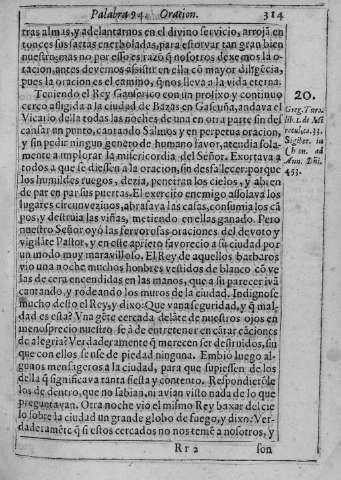 Palabra 94. Oracion. 314
tras almas, y adelantarnos en el divino servicio, arrojã en
tonces sus saetas enerboladas, para estorvar tan gran bien
nuestro; mas no por esso es razõ q̃ nosotros dexemos la o-
racion, antes devemos assistir en ella cõ mayor diligẽcia,
pues la oracion es el camino, q̃ nos lleva a la vida eterna.
Teniendo el Rey Gauserico con un prolixo y continuo
cerco afligida a la ciudad de Bazas en Gascuña, andava el
Vicario della todas las noches de una en otra parte sin des
cansar un punto, cantando Salmos y en perpetua oracion,
y sin pedir ningun genero de humano favor, atendia sola-
mente a implorar la misericordia del Señor. Exortava a
todos a que se diessen a la oracion, sin desfallecer: porque
los humildes ruegos, dezia, penetran los cielos, y abren
de par en par sus puertas. El exercito enemigo assolava los
lugares circunvezinos, abrasava las casas, consumia los cã
pos, y destruia las viñas, metiendo en ellas ganado. Pero
nuestro Señor oyó las fervorosas oraciones del devoto y
vigilãte Pastor, y en este aprieto favorecio a su ciudad por
un modo muy maravilloso. El Rey de aquellos barbaros
vio una noche muchos hombres vestidos de blanco cõ ve
las de cera encendidas en las manos, que a su parecer ivã
cantando, y rodeando los muros de la ciudad. Indignose
mucho desto el Rey, y dixo: Que vana seguridad, y q̃ mal-
dad es esta? Una gẽte cercada delãte de nuestros ojos en
menosprecio nuestro se à de entretener en cãtar cãciones
de alegria? Verdaderamente q̃ merecen ser destruidos, sin
que con ellos se use de piedad ninguna. Embió luego al-
gunos mensageros a la ciudad, para que supiessen de los
della q̃ significava tanta fiesta y contento. Respondierõle
los de dentro, que no sabian, ni avian visto nada de lo que
preguntavan. Otra noche vió el mismo Rey baxar del cie
lo sobre la ciudad un grande globo de fuego, y dixo: Ver-
daderamẽte q̃ si estos cercados no nos temẽ a nosotros, y
Rr 2 son
20.
Greg. Turo.
lib. 1. de Mi
racul. c. 33.
Sigiber. in
Chon. ad
Ann. Dñi.
453.